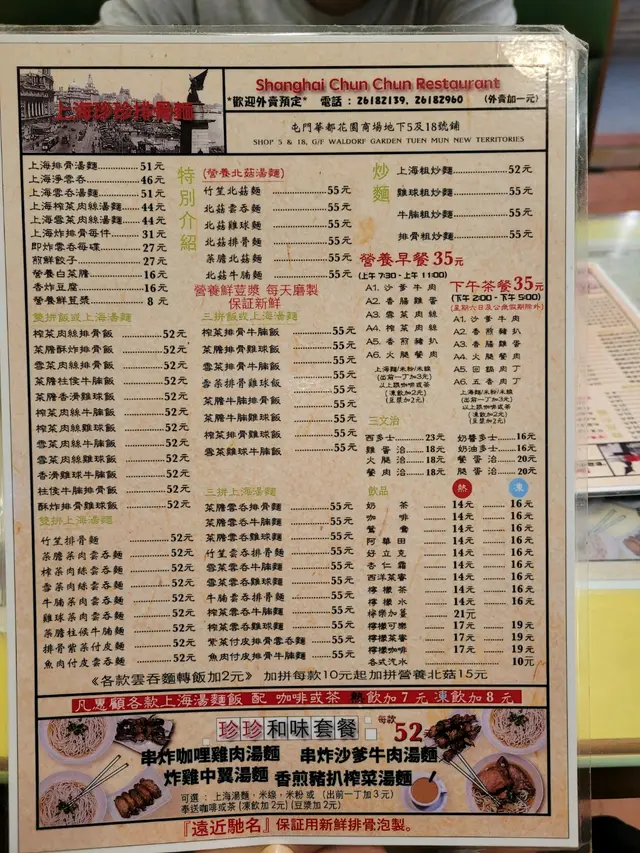 上海珍珍排骨麵
Shanghai Chun Chun Restaurant
*歡迎外賣預定* 電話：26182139, 26182960 (外賣加一元)
屯門華都花園商場地下5及18號鋪
SHOP 5 & 18, G/F WALDORF GARDEN TUEN MUN NEW TERRITORIES
上海排骨湯麵 51元
上海淨雲吞 46元
上海雲吞湯麵 51元
上海榨菜肉絲湯麵 44元
上海雪菜肉絲湯麵 44元
上海炸排骨每件 31元
即炸雲吞每碟 27元
煎鮮餃子 27元
營養白菜膽 16元
香炸豆腐 16元
營養鮮荳漿 8元
特別介紹
(營養北菇湯麵)
竹笙北菇麵 55元
北菇雲吞麵 55元
北菇雞球麵 55元
北菇排骨麵 55元
菜膽北菇麵 55元
北菇牛腩麵 55元
營養鮮荳漿 每天磨製
保証新鮮
炒麵
上海粗炒麵 52元
雞球粗炒麵 55元
牛腩粗炒麵 55元
排骨粗炒麵 55元
營養早餐35元
(上午7:30-上午11:00)
A1. 沙爹牛肉
A2. 香腸雞蛋
A3. 雪菜肉絲
A4. 榨菜肉絲
A5. 香煎豬扒
A6. 火腿餐肉
上海麵/米粉/米線
(出前一丁加3元)
以上跟咖啡或茶
(凍飲加2元)
(豆漿加2元)
下午茶餐35元
(下午2:00-下午5:00)
(星期六日及公眾假期除外)
A1. 沙爹牛肉
A2. 香煎雞扒
A3. 香腸雞蛋
A4. 火腿餐肉
A5. 回鍋肉丁
A6. 五香肉丁
上海麵/米粉/米線
(出前一丁加3元)
以上跟咖啡或茶
(凍飲加2元)
(豆漿加2元)
雙拼飯或上海湯麵
榨菜肉絲排骨飯 52元
菜膽酥炸排骨飯 52元
雪菜肉絲排骨飯 52元
菜膽柱侯牛腩飯 52元
菜膽香滑雞球飯 52元
榨菜肉絲牛腩飯 52元
榨菜肉絲雞球飯 52元
雪菜肉絲牛腩飯 52元
雪菜肉絲雞球飯 52元
香滑雞球牛腩飯 52元
柱侯牛腩排骨飯 52元
酥炸排骨雞球飯 52元
三拼飯或上海湯麵
榨菜排骨牛腩飯 55元
菜膽排骨雞球飯 55元
雪菜排骨牛腩飯 55元
雪菜排骨雞球飯 55元
菜膽牛腩排骨飯 55元
菜膽牛腩雞球飯 55元
榨菜排骨雞球飯 55元
雪菜雞球牛腩飯 55元
三文治
西多士 23元
雞蛋治 18元
火腿治 18元
餐肉治 18元
奶醬多士 16元
奶油多士 16元
餐蛋治 20元
腿蛋治 20元
雙拼上海湯麵
竹笙排骨麵 52元
菜膽菜肉雲吞麵 52元
榨菜肉絲雲吞麵 52元
雪菜肉絲雲吞麵 52元
牛腩菜肉雲吞麵 52元
雞球菜肉雲吞麵 52元
菜膽柱侯牛腩麵 52元
排骨紫菜付皮麵 52元
魚肉付皮雲吞麵 52元
三拼上海湯麵
菜膽雲吞排骨麵 55元
菜膽雲吞牛腩麵 55元
菜膽雲吞雞球麵 55元
竹笙雲吞排骨麵 55元
雪菜雲吞牛腩麵 55元
雪菜雲吞雞球麵 55元
牛腩雲吞排骨麵 55元
榨菜雲吞牛腩麵 55元
榨菜雲吞雞球麵 55元
紫菜付皮排骨雲吞麵 55元
魚肉付皮排骨牛腩麵 55元
飲品 熱 凍
奶茶 14元 16元
咖啡 14元 16元
鴛鴦 14元 16元
阿華田 14元 16元
好立克 14元 16元
杏仁霜 14元 16元
西洋菜蜜 14元 16元
檸檬茶 14元 16元
檸檬水 14元 16元
檸樂加薑 21元
檸檬可樂 17元 19元
檸檬菜蜜 17元 19元
檸檬咖啡 17元 19元
各式汽水 10元
《各款雲吞麵轉飯加2元》 加拼每款10元起加拼營養北菇15元
凡惠顧各款上海湯麵飯 配 咖啡或茶 熱飲加7元 凍飲加8元
珍珍和味套餐 每款52元
串炸咖哩雞肉湯麵 串炸沙爹牛肉湯麵
炸雞中翼湯麵 香煎豬扒榨菜湯麵
可選：上海湯麵，米線，米粉 或 (出前一丁加3元)
奉送咖啡或茶(凍飲加2元)(豆漿加2元)
『遠近馳名』保証用新鮮排骨泡製。